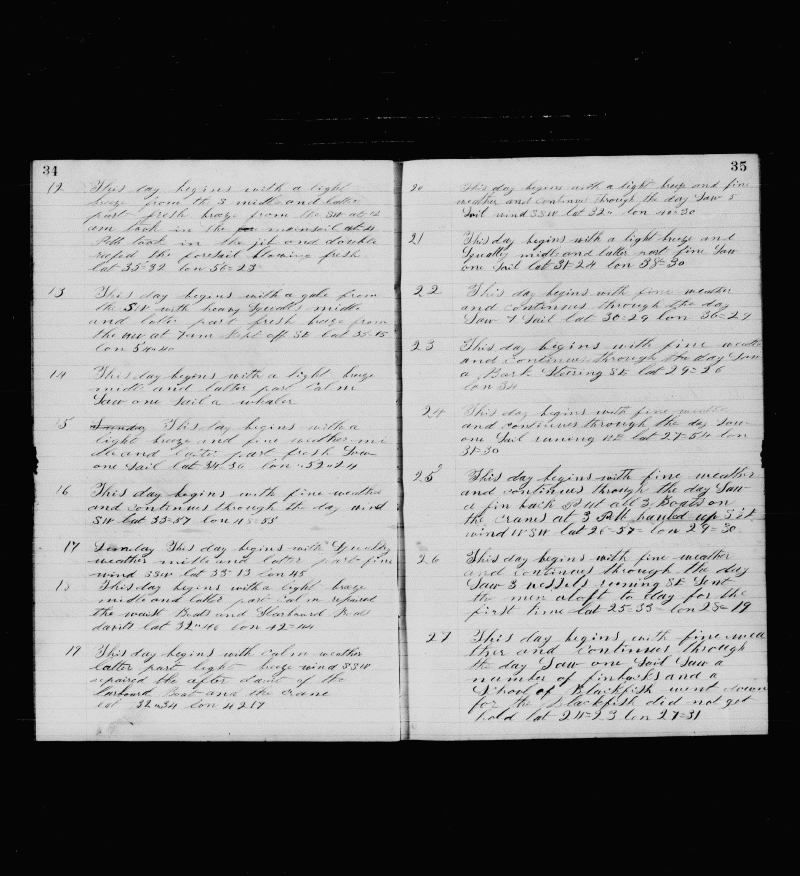 34
12 This day begins with a light
breze from the S midle and latter
part fresh breze from the SW at 12
am took in the mainsail at 4
PM took in the jib and double
refed the foresail blowing fresh
lat 35=32 lon 56=23
13 This day begins with a gale from
the SW with heavy Squalls midle
and latter part fresh breze from
the at 7 am Kept off SE lat 35=15
lon 54=40
14 This day begins with a light breze
midle and latter part Calm
Saw one Sail a whaler
15 Sunday This day begins with a
light breeze and fine weather mi
dle and latter part fresh Saw
one Sail lat 34=36 lon 52=24
16 This day begins with fine weather
and continues through the day wind
SW lat 33=57 lon 48=55
17 Sunday This day begins with Squaly
weather midle and latter part fine
wind SSW lat 33=13 lon 45
18 This day begins with a light breze
midle and latter part Calm repaired
the waist Boats and Starboard Boats
davits lat 32=46 lon 42=44
19 This day begins with Calm weather
latter part light breze wind SSW
repaired the after davit of the
larboard Boat and the crane
lat 32=34 lon 42 17
35
20 This day begins with a light breze and fine
weather and continues through the day Saw 5
Sail wind SSW lat 32 lon 40=30
21 This day begins with a light breeze and
Squally midle and latter part fine Saw
one Sail lat 31=24 lon 38=30
22 This day begins with fine weather
and continues through the day
Saw 7 Sail lat 30=29 lon 36=29
23 This day begins with fine weather
and continues through the day Saw
a Bark Stering SE lat 29=26
lon 34
24 This day begins with fine weather
and continues through the day Saw
one Sail runing lat 27=54 lon
31=30
25 This day begins with fine weather
and continues through the day Saw
a fin back Put all 3 Boats on
the cranes at 3 PM hauled up
wind WSW lat 26=57 lon 29=30
26 This day begins with fine weather
and continues through the day
Saw 3 vessels runing SE Sent
the men aloft to day for the
first time lat 25=33 lon 28=19
27 This day begins with fine wea
ther and continues through
the day Saw one Sail Saw a
number of finbacks and a
School of Blackfish went down
for the Blackfish did not get
hold lat 24=23 lon 27=31